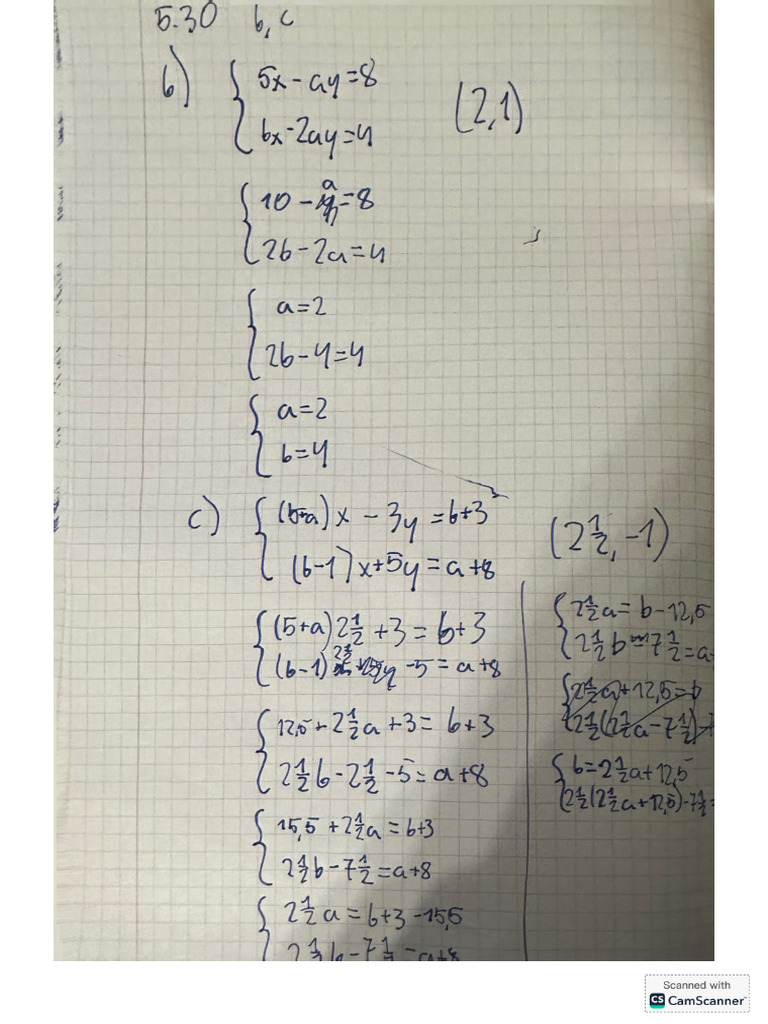 5.30 b, c
b) { 5x - ay = 8
{ bx - 2ay = 4
(2,1)
{ 10 - a = 8
{ 2b - 2a = 4
{ a = 2
{ 2b - 4 = 4
{ a = 2
{ b = 4
c) { (5+a)x - 3y = b+3
{ (b-1)x + 5y = a+8
(2½, -1)
{ (5+a)2½ + 3 = b+3
{ (b-1)2½ - 5 = a+8
{ 12,5 + 2½a + 3 = b+3
{ 2½b - 2½ - 5 = a+8
{ 15,5 + 2½a = b+3
{ 2½b - 7½ = a+8
{ 2½a = b+3 - 15,5
{ 2½b - 7½ = a+8
{ 2½a = b - 12,5
{ 2½b - 7½ = a
{ 2½a + 12,5 = b
{ 2½(2½a - 7½)
{ b = 2½a + 12,5
{ 2½(2½a + 12,5) - 7½ =
Scanned with
CS CamScanner